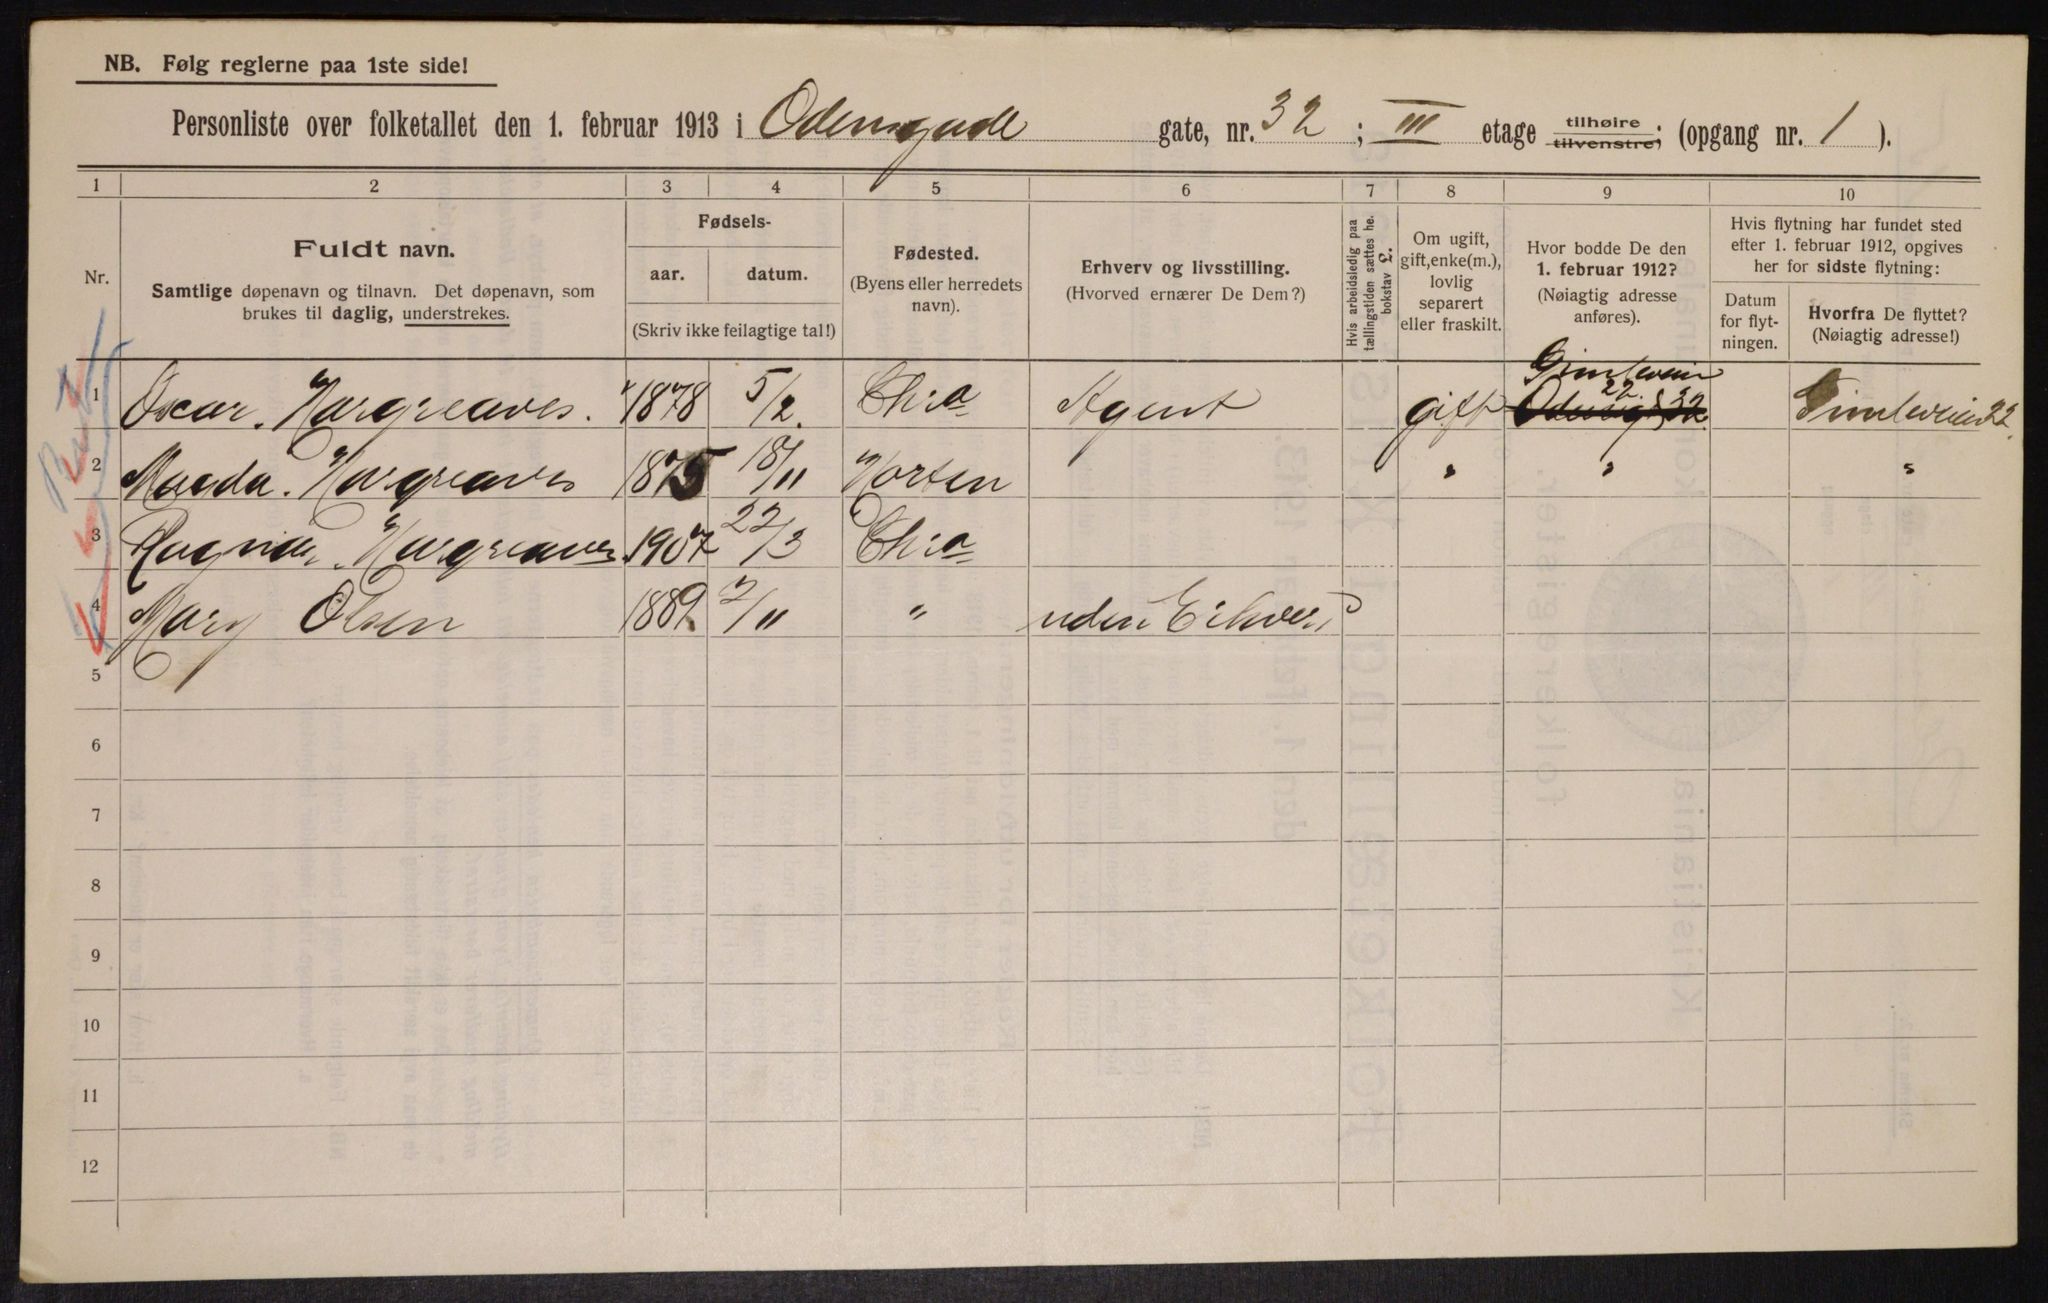 NB. Følg reglerne paa 1ste side!
Personliste over folketallet den 1. februar 1913 i Odensgade gate, nr. 32 ; III etage tilhøire tilvenstre; (opgang nr. 1 ).
1 2 3 4 5 6 7 8 9 10
Nr.
Fuldt navn.
Samtlige døpenavn og tilnavn. Det døpenavn, som
brukes til daglig, understrekes.
Fødsels-
aar. datum.
(Skriv ikke feilagtige tal!)
Fødested.
(Byens eller herredets
navn).
Erhverv og livsstilling.
(Hvorved ernærer De Dem?)
Hvis arbeidsledig paa
tællingstiden sættes he.
bokstav L.
Om ugift,
gift, enke(m.),
lovlig
separert
eller fraskilt.
Hvor bodde De den
1. februar 1912?
(Nøiagtig adresse
anføres).
Hvis flytning har fundet sted
efter 1. februar 1912, opgives
her for sidste flytning:
Datum
for flyt-
ningen.
Hvorfra De flyttet?
(Nøiagtig adresse!)
1 Oscar. Hargreaves. 1878 5/2. Chra Agent gift Gimleveien 22. Gimleveien 22.
2 Magda. Hargreaves 1875 18/11 Horten " " "
3 Ragnar. Hargreaves. 1907 22/3 Chra
4 Mary Olsen 1889 2/11 " uden Erhverv
5
6
7
8
9
10
11
12